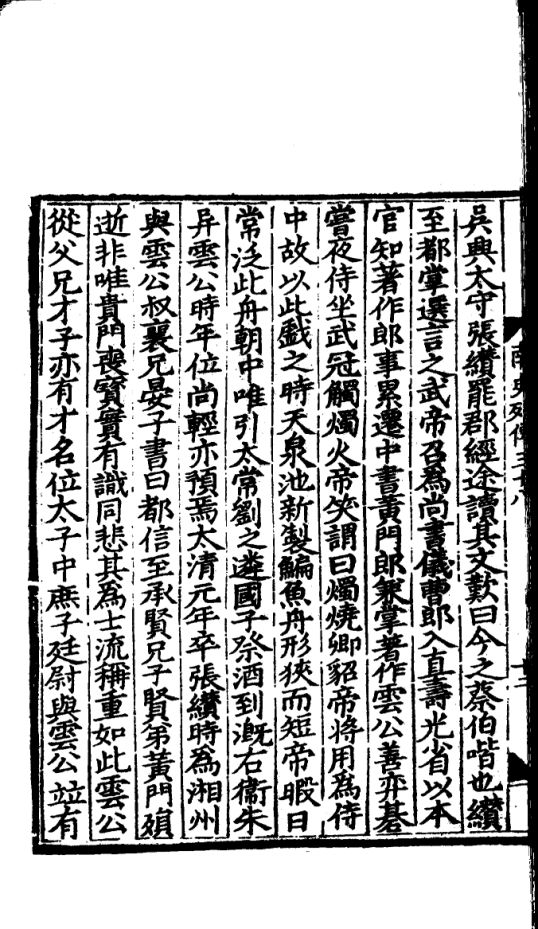 南史列傳三十八 十三
吳興太守張纘罷郡經途讀其文歎曰今之蔡伯喈也纘
至都掌選言之武帝召爲尚書儀曹郎入直壽光省以本
官知著作郎事累遷中書黃門郎兼掌著作雲公善弈碁
嘗夜侍坐武冠觸燭火帝笑謂曰燭燒卿貂帝將用爲侍
中故以此戲之時天泉池新製鯿魚舟形狹而短帝暇日
常泛此舟朝中唯引太常劉之遴國子祭酒到溉右衞朱
异雲公時年位尚輕亦預焉太清元年卒張纘時爲湘州
與雲公叔襄兄晏子書曰都信至承賢兄子賢弟黃門殞
逝非唯貴門喪寶實有識同悲其爲士流稱重如此雲公
從父兄才子亦有才名位太子中庶子廷尉與雲公竝有